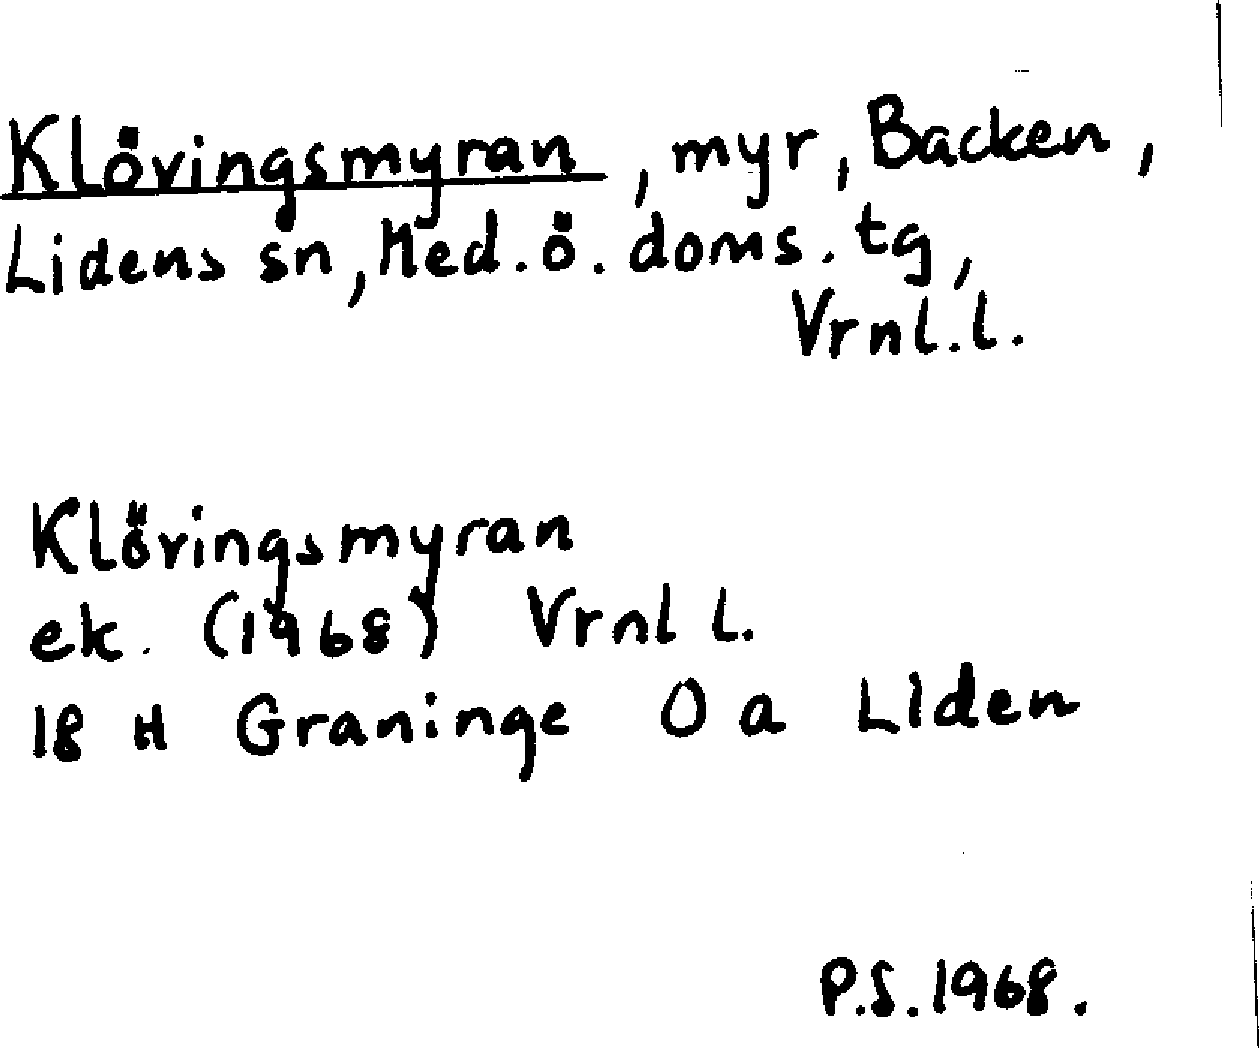 Klövingsmyran, myr, Backen,
Lidens sn, Med.ö. doms. tg,
Vrnl.l.
Klövingsmyran
ek. (1968) Vrnl l.
18 H Graninge O a Liden
P.S. 1968.